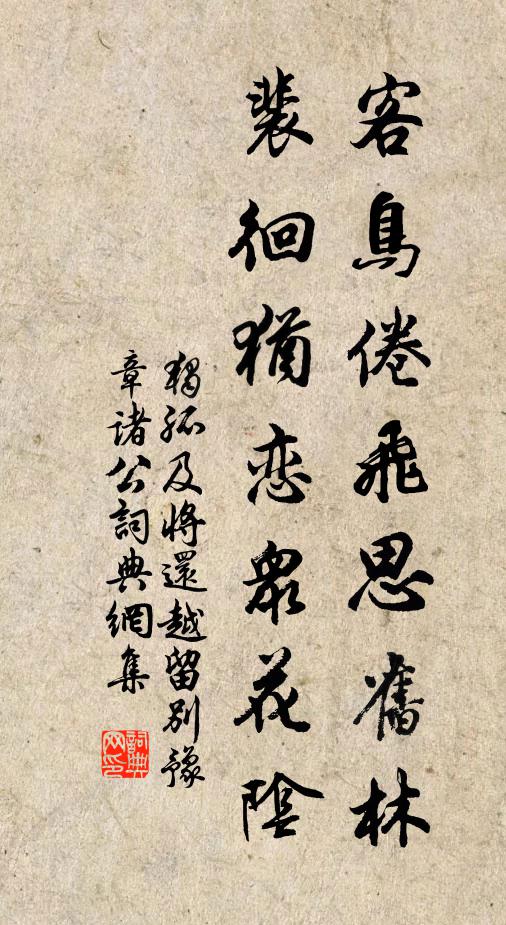 客鳥倦飛思舊林
裴徊猶戀衆花陰
獨孤及將還越留別豫
章諸公詞典網集
詞典
网印